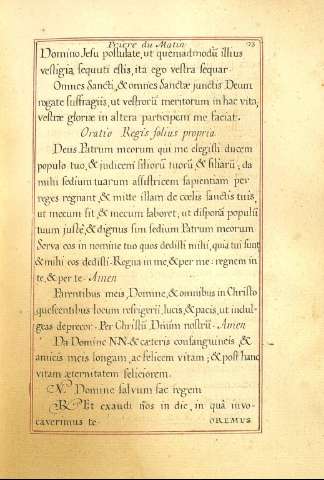 Priere du Matin
Domino Jesu postulate, ut quemadmodū illius
vestigia sequuti estis, ita ego vestra sequar.
Omnes Sancti, & omnes Sanctæ junctis Deum
rogate suffragiis, ut vestrorū meritorum in hac vita,
vestræ gloriæ in altera participem me faciat.
Oratio Regis solius propria.
Deus Patrum meorum qui me elegisti ducem
populo tuo, & judicem filiorū tuorū & filiarū; da
mihi sedium tuarum assistricem sapientiam per
reges regnant, & mitte illam de cœlis sanctis tuis,
ut mecum sit & mecum laboret, ut disponā populū
tuum justè, & dignus sim sedium Patrum meorum.
Serva eos in nomine tuo quos dedisti mihi, quia tui sunt
& mihi eos dedisti. Regna in me, & per me regnem in
te, & per te. Amen
Parentibus meis, Domine, & omnibus in Christo
quiescentibus locum refrigerii, lucis, & pacis, ut indul-
geas deprecor. Per Christū Dnum nostrū. Amen
Da Domine NN. & cæteris consanguineis, &
amicis meis longam, ac felicem vitam; & post hanc
vitam æternitatem feliciorem.
V. Domine salvum fac regem
R. Et exaudi nos in die, in quâ invo-
caverimus te. OREMUS